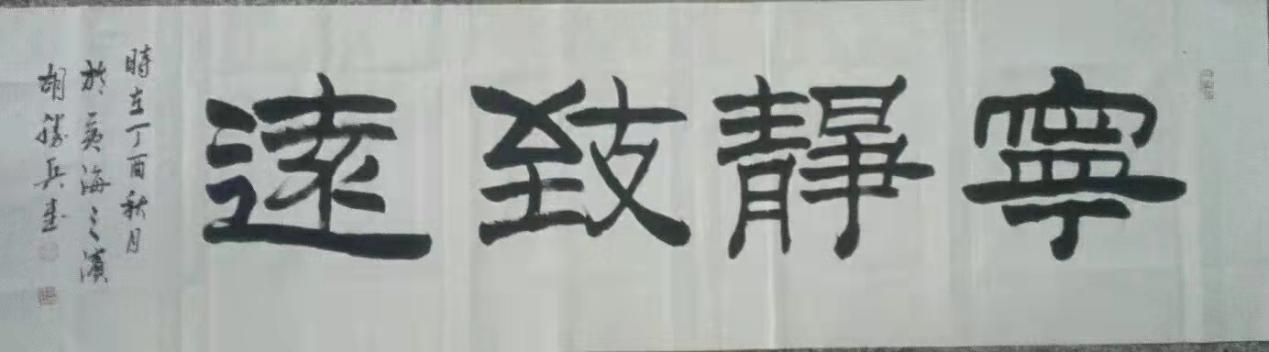 寧靜致遠
時在丁酉秋月
於黃海之濱
胡勝兵書